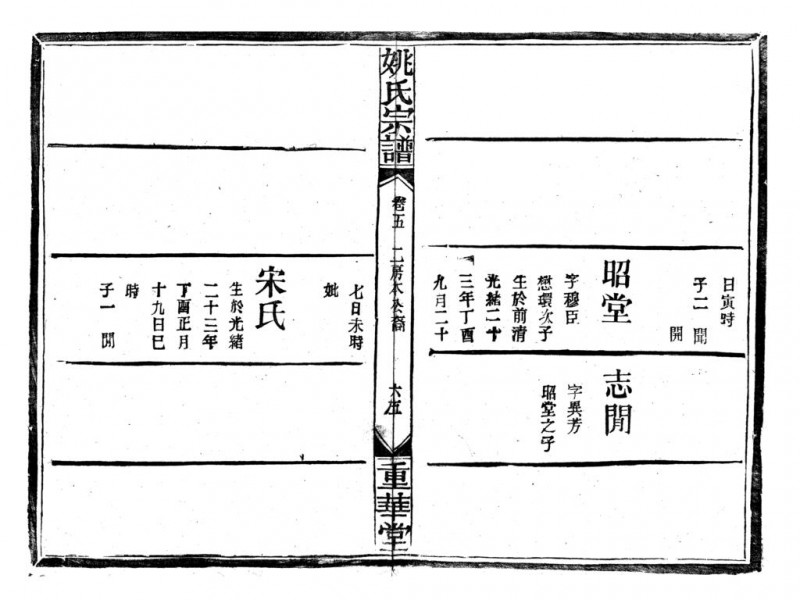 日寅時
子二 聞
開
昭堂
字穆臣
懋環次子
生於前清
光緒二十
三年丁酉
九月二十
志聞
字異芳
昭堂之子
姚氏宗譜
卷五
二房本公裔
六五
重華堂
七日未時
妣
宋氏
生於光緒
二十三年
丁酉正月
十九日巳
時
子一 聞